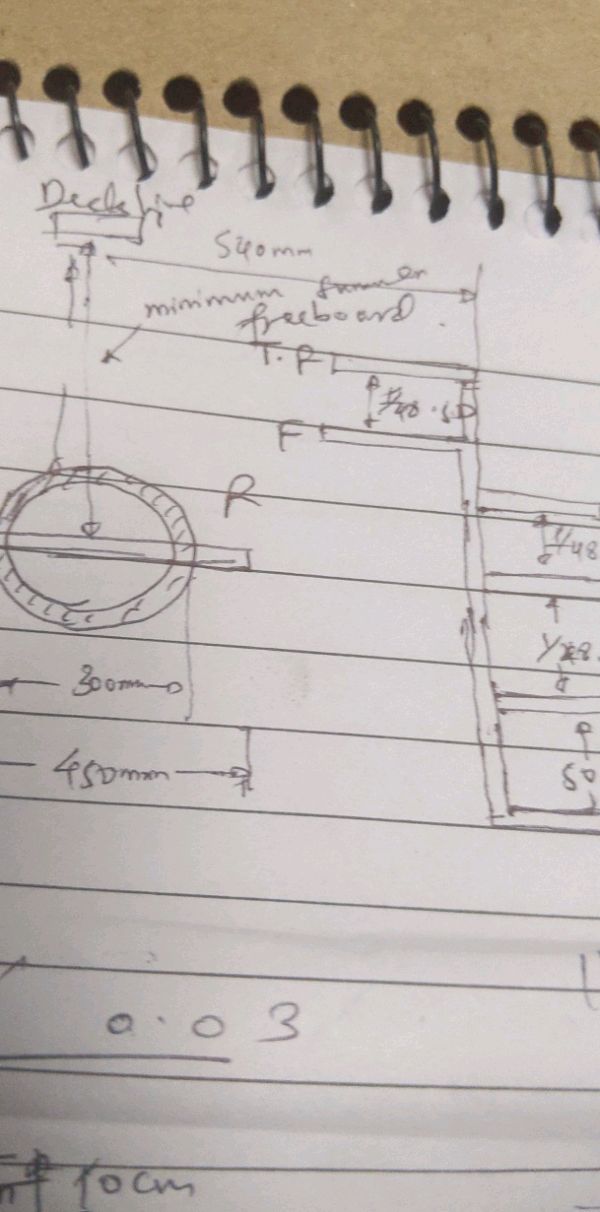 Deck line
540mm
minimum summer
freeboard.
T.F
F
R
1/48
300mm
450mm
50
0.03
10cm